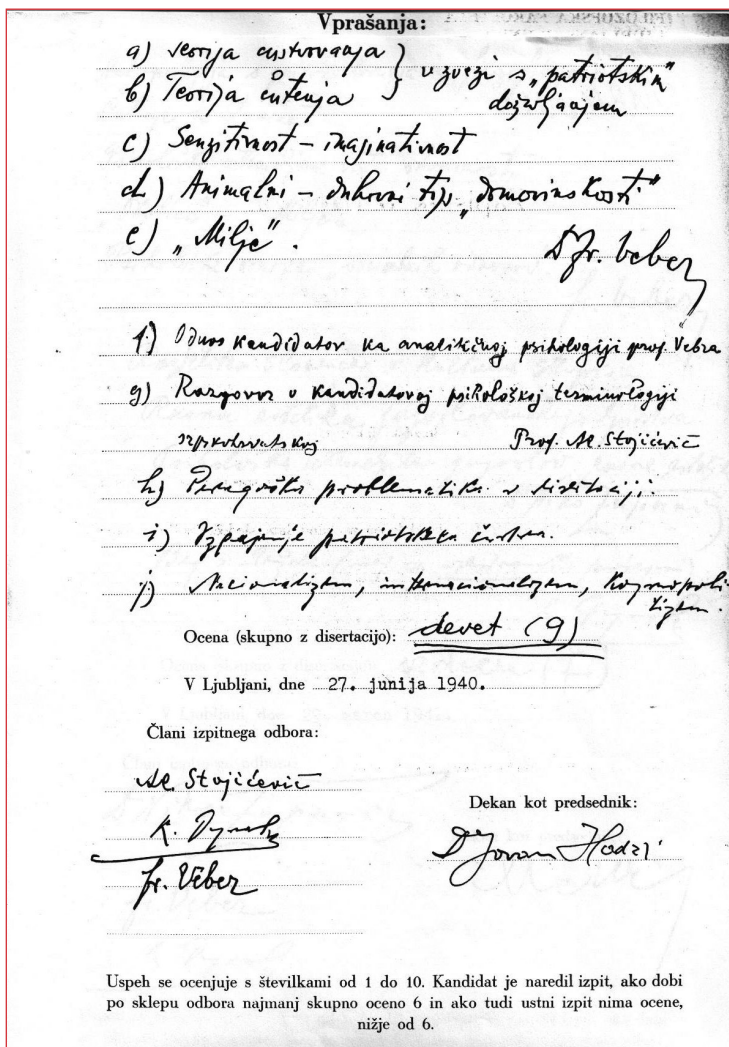 Vprašanja:
a) Teorija čustvovanja
b) Teorija čutenja } v zvezi s „patriotskim"
doživljanjem
c) Senzitivnost – imaginativnost
d) Animalni – duhovni tip „domovinskosti"
e) „Milje".
Dr Fr. Veber
f) Odnos kandidatov ka analitičnoj psihologiji prof. Vebra
g) Razgovor o kandidatovoj psihološkoj terminologiji
srpskohrvatskoj Prof. Al. Stojićević
h) problematika v disertaciji.
i) Vzgajanje patriotskega čustva.
j) Nacionalizem, internacionalizem, kozmopoli-
tizem.
Ocena (skupno z disertacijo): devet (9)
V Ljubljani, dne 27. junija 1940.
Člani izpitnega odbora:
Al. Stojićević
Dekan kot predsednik:
K.
Fr. Veber
Uspeh se ocenjuje s številkami od 1 do 10. Kandidat je naredil izpit, ako dobi
po sklepu odbora najmanj skupno oceno 6 in ako tudi ustni izpit nima ocene,
nižje od 6.